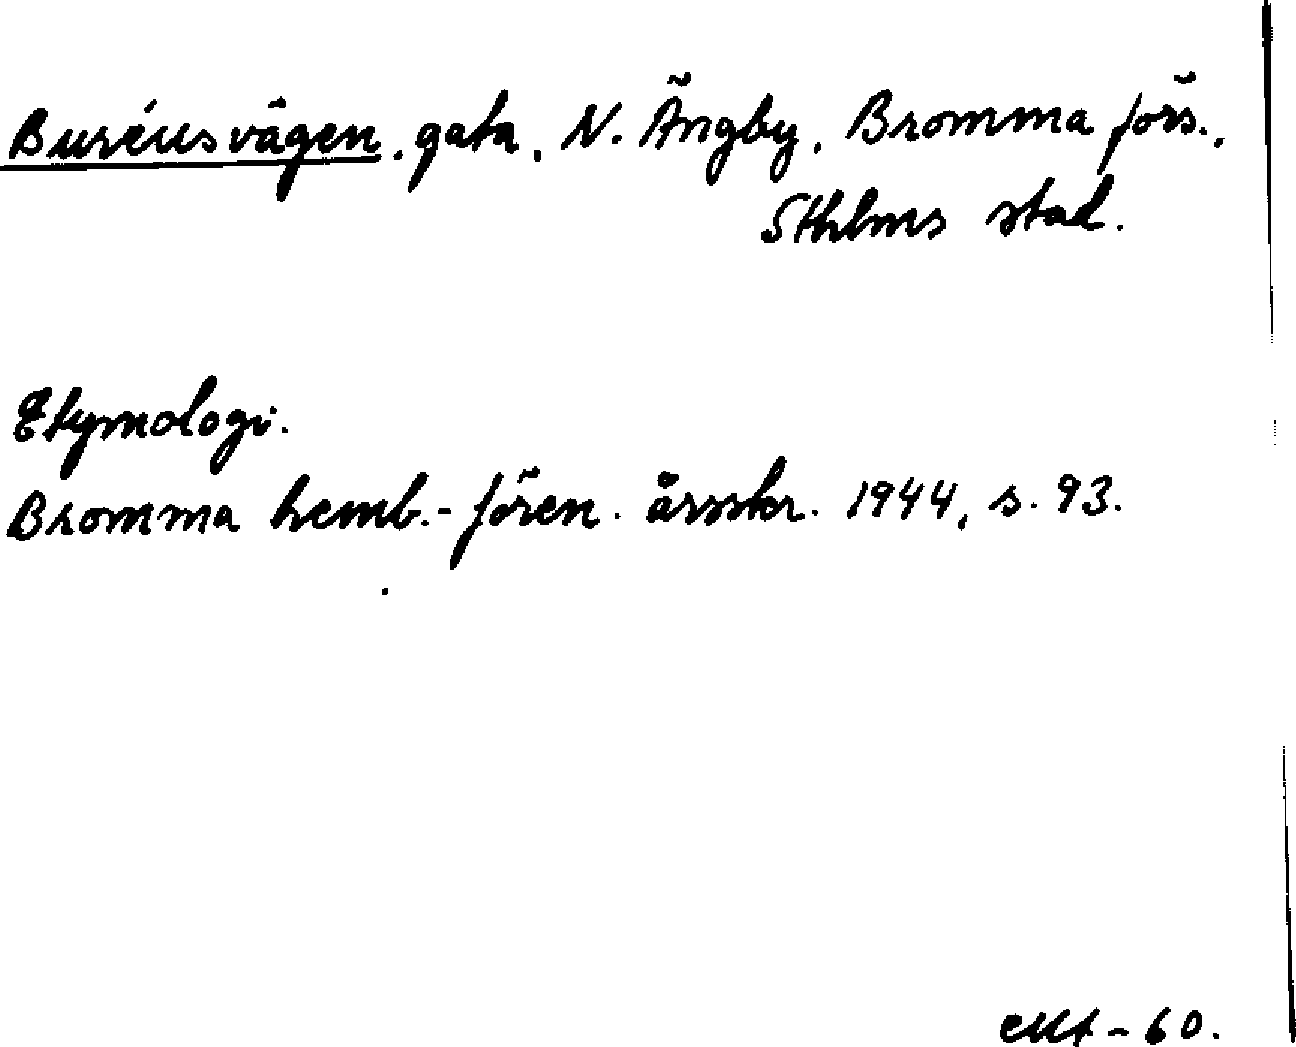 Buréusvägen, gata, N. Ängby, Bromma förs.,
Sthlms stad.
Etymologi.
Bromma hemb.-fören. årsskr. 1944, s. 93.
-60.